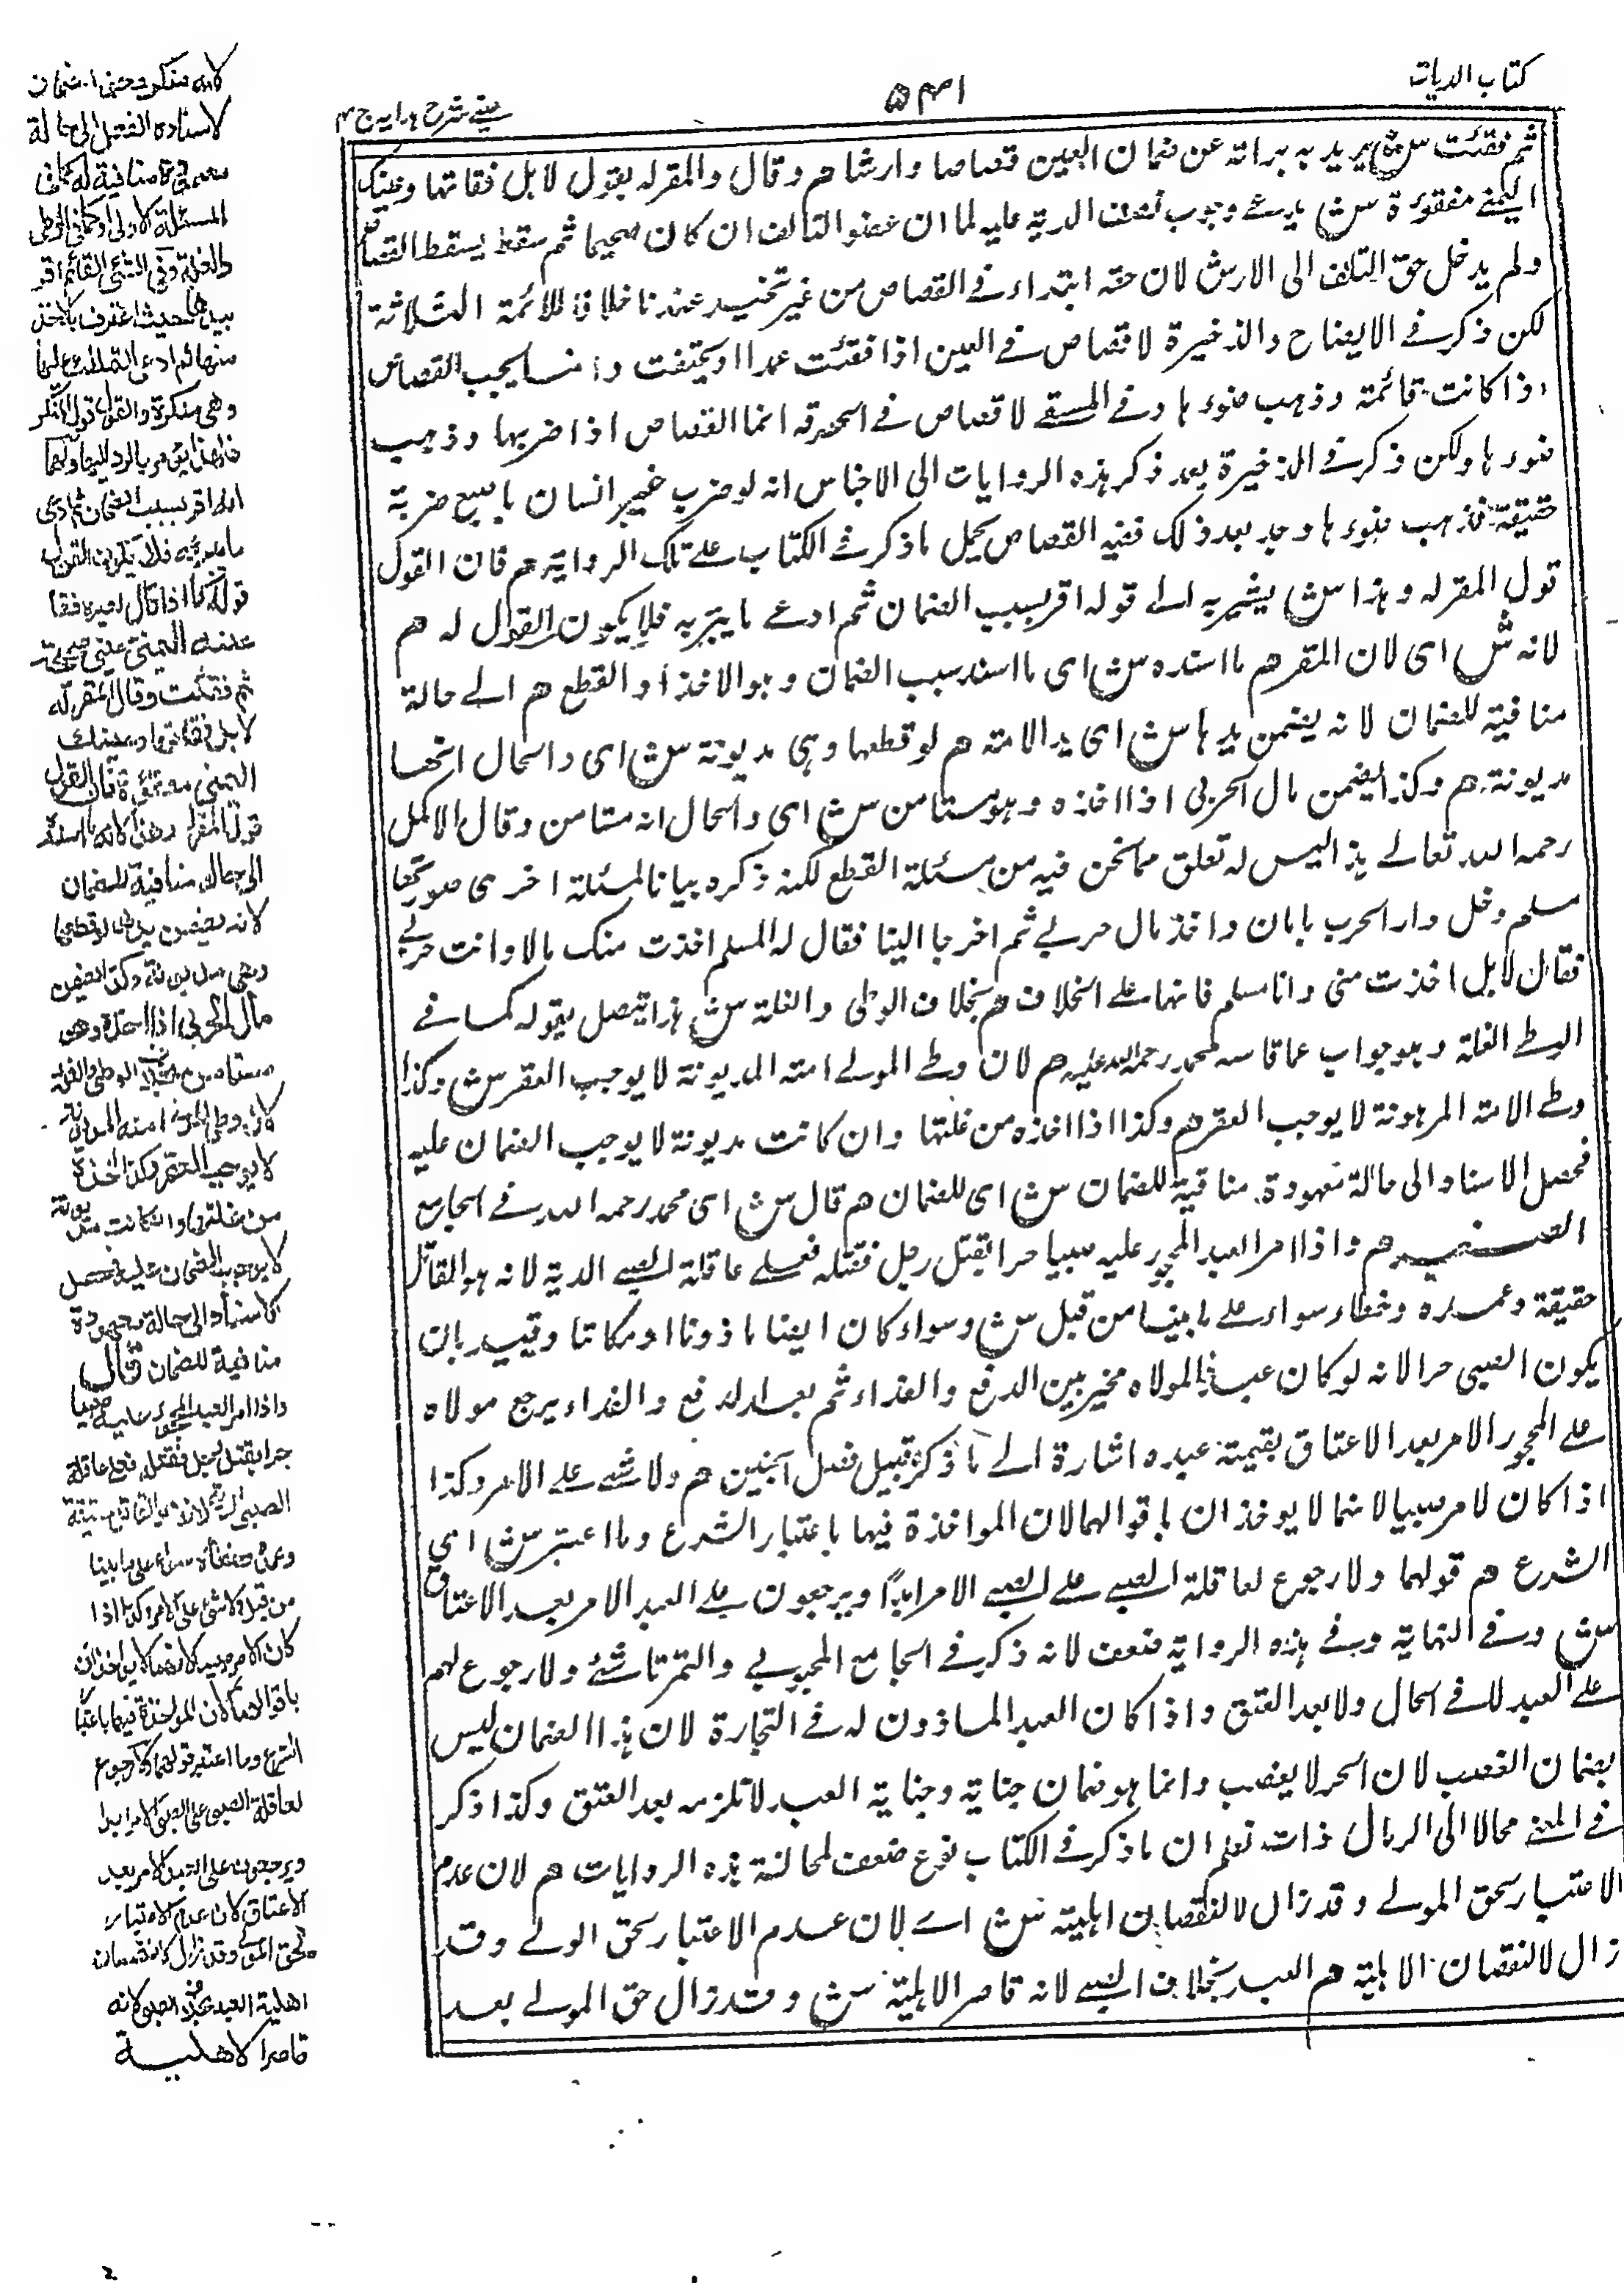 كتاب الديات
۵۴۱
عينى شرح هدايه ج ۴
ثم فقئت ش يريد به براءته عن ضمان العين قصاصا وارشا هم وقال والمقر له يقول لا بل فقاتها وعينك
اليمنى مفقوءة ش يدعى وجوب نصف الدية عليه لما ان عضو التالف ان كان صحيحا ثم سقط يسقط القصاص
ولم يدخل حق التلف الى الارش لان حقه ابتداء فى القصاص من غير تخيير عندنا خلافا للائمة الثلاثة
لكن ذكر فى الايضاح والذخيرة لا قصاص فى العين اذا فقئت عمدا او يختفت وانما يجب القصاص
اذا كانت قائمة وذهب ضوءها وفى المنتقى لا قصاص فى الحدقة انما القصاص اذا ضربها وذهب
ضوءها ولكن ذكر فى الذخيرة بعد ذكر هذه الروايات الى الاجناس انه لو ضرب عين انسان باصبع ضربة
حقيقة فذهب ضوءها وجد بعد ذلك ففيه القصاص يحمل ما ذكر فى الكتاب على تلك الرواية هم فان القول
قول المقر له وهذا ش يشير به الى قوله اقر بسبب الضمان ثم ادعى ما يبرئه فلا يكون القول له هم
لانه ش اى لان المقر هم ما اسنده ش اى ما اسند سبب الضمان وهو الاخذ او القطع هم الى حالة
منافية للضمان لانه يضمن يدها ش اى يد الامة هم لو قطعها وهى مديونة ش اى والحال انها
مديونة هم وكذا يضمن مال الحربى اذا اخذه وهو مستامن ش اى والحال انه مستامن وقال الاكمل
رحمه الله تعالى هذا ليس له تعلق مما نحن فيه من مسئلة القطع لكنه ذكره بيانا لمسئلة اخرى صورتها
مسلم دخل دار الحرب بامان واخذ مال حربى ثم اخرجا الينا فقال له المسلم اخذت منك مالا وانت حربى
فقال لا بل اخذت منى وانا مسلم فانها على الخلاف هم بخلاف الوطى والغلة ش هذا يتصل بقوله كما فى
الوطى الغلة وهو جواب عما قاسه محمد رحمة الله عليه هم لان وطى المولى امته المديونة لا يوجب العقر ش وكذا
وطى الامة المرهونة لا يوجب العقر هم وكذا اذا اخذه من غلتها وان كانت مديونة لا يوجب الضمان عليه
فحصل الاسناد الى حالة معهودة منافية للضمان ش اى للضمان هم قال ش اى محمد رحمه الله فى الجامع
الصغير هم واذا امر العبد المحجور عليه صبيا حرا بقتل رجل فقتله فعلى عاقلة الصبى الدية لانه هو القاتل
حقيقة وعمده وخطاء سواء على ما بينا من قبل ش وسواء كان ايضا ماذونا او مكاتبا وقيد بان
يكون الصبى حرا لانه لو كان عبدا فالمولاه مخير بين الدفع والفداء ثم بعد الدفع والفداء يرجع مولاه
على المحجور الامر بعد الاعتاق بقيمة عبده اشارة الى ما ذكره قبيل فصل الجنين هم ولا شىء على الامر وكذا
اذا كان الامر صبيا لانهما لا يوخذان باقوالهما لان المواخذة فيها باعتبار الشرع وما اعتبر ش اى
الشرع هم قولهما ولا رجوع لعاقلة الصبى على الصبى الامر ابدا ويرجعون على العبد الامر بعد الاعتاق
ش وفى النهاية وفى هذه الرواية ضعف لانه ذكر فى الجامع المحبوبى والتمرتاشى ولا رجوع لهم
على العبد لا فى الحال ولا بعد العتق واذا كان العبد الماذون له فى التجارة لان هذا الضمان ليس
بضمان الغصب لان الحر لا يغصب وانما هو ضمان جناية وجناية العبد لا تلزمه بعد العتق وكذا ذكر
فى المغنى محالا الى الرمال ذات تعلم ان ما ذكر فى الكتاب نوع ضعف لمخالفة هذه الروايات هم لان عدم
الاعتبار بحق المولى وقد زال لا لنقصان اهلية ش اى لان عدم الاعتبار بحق المولى وقد
زال لا لنقصان الاهلية هم العبد بخلاف الصبى لانه قاصر الاهلية ش وقد زال حق المولى بعد
لانه منكر وجب الضمان
لاسناده الفعل الى حالة
معهودة منافية له كما فى
المسئلة الاولى وكما فى الوطى
والغلة وفى الشئ القائم اقر
بيدها حيث اعترف بالاخذ
منها ثم ادعى التملك عليها
وهى منكرة والقول قول المنكر
فلهذا يؤمر بالرد اليها ولهما
انه اقر بسبب الضمان ثم ادعى
ما يبرئه فلا يكون القول
قوله كما اذا قال لغيره فقأت
عينك اليمنى وعينى صحيحة
ثم فقئت وقال المقر له
لا بل فقأتها وعينك
اليمنى مفقوءة فان القول
قول المقر له وهذا لانه ما اسنده
الى حالة منافية للضمان
لانه يضمن يدها لو قطعها
وهى مديونة وكذا يضمن
مال الحربى اذا اخذه وهو
مستامن بخلاف الوطى والغلة
لان وطى المولى امته المديونة
لا يوجب العقر وكذا اخذه
من غلتها وان كانت مديونة
لا يوجب الضمان عليه فحصل
الاسناد الى حالة معهودة
منافية للضمان قال
واذا امر العبد المحجور عليه صبيا
حرا بقتل رجل فقتله فعلى عاقلة
الصبى الدية لانه هو القاتل حقيقة
وعمده وخطأه سواء على ما بينا
من قبل ولا شئ على الامر وكذا اذا
كان الامر صبيا لانهما لا يواخذان
باقوالهما لان المواخذة فيها باعتبار
الشرع وما اعتبر قولهما ولا رجوع
لعاقلة الصبى على الصبى الامر ابدا
ويرجعون على العبد الامر بعد
الاعتاق لان عدم الاعتبار
لحق المولى وقد زال لا لنقصان
اهلية العبد بخلاف الصبى لانه
قاصر الاهلية